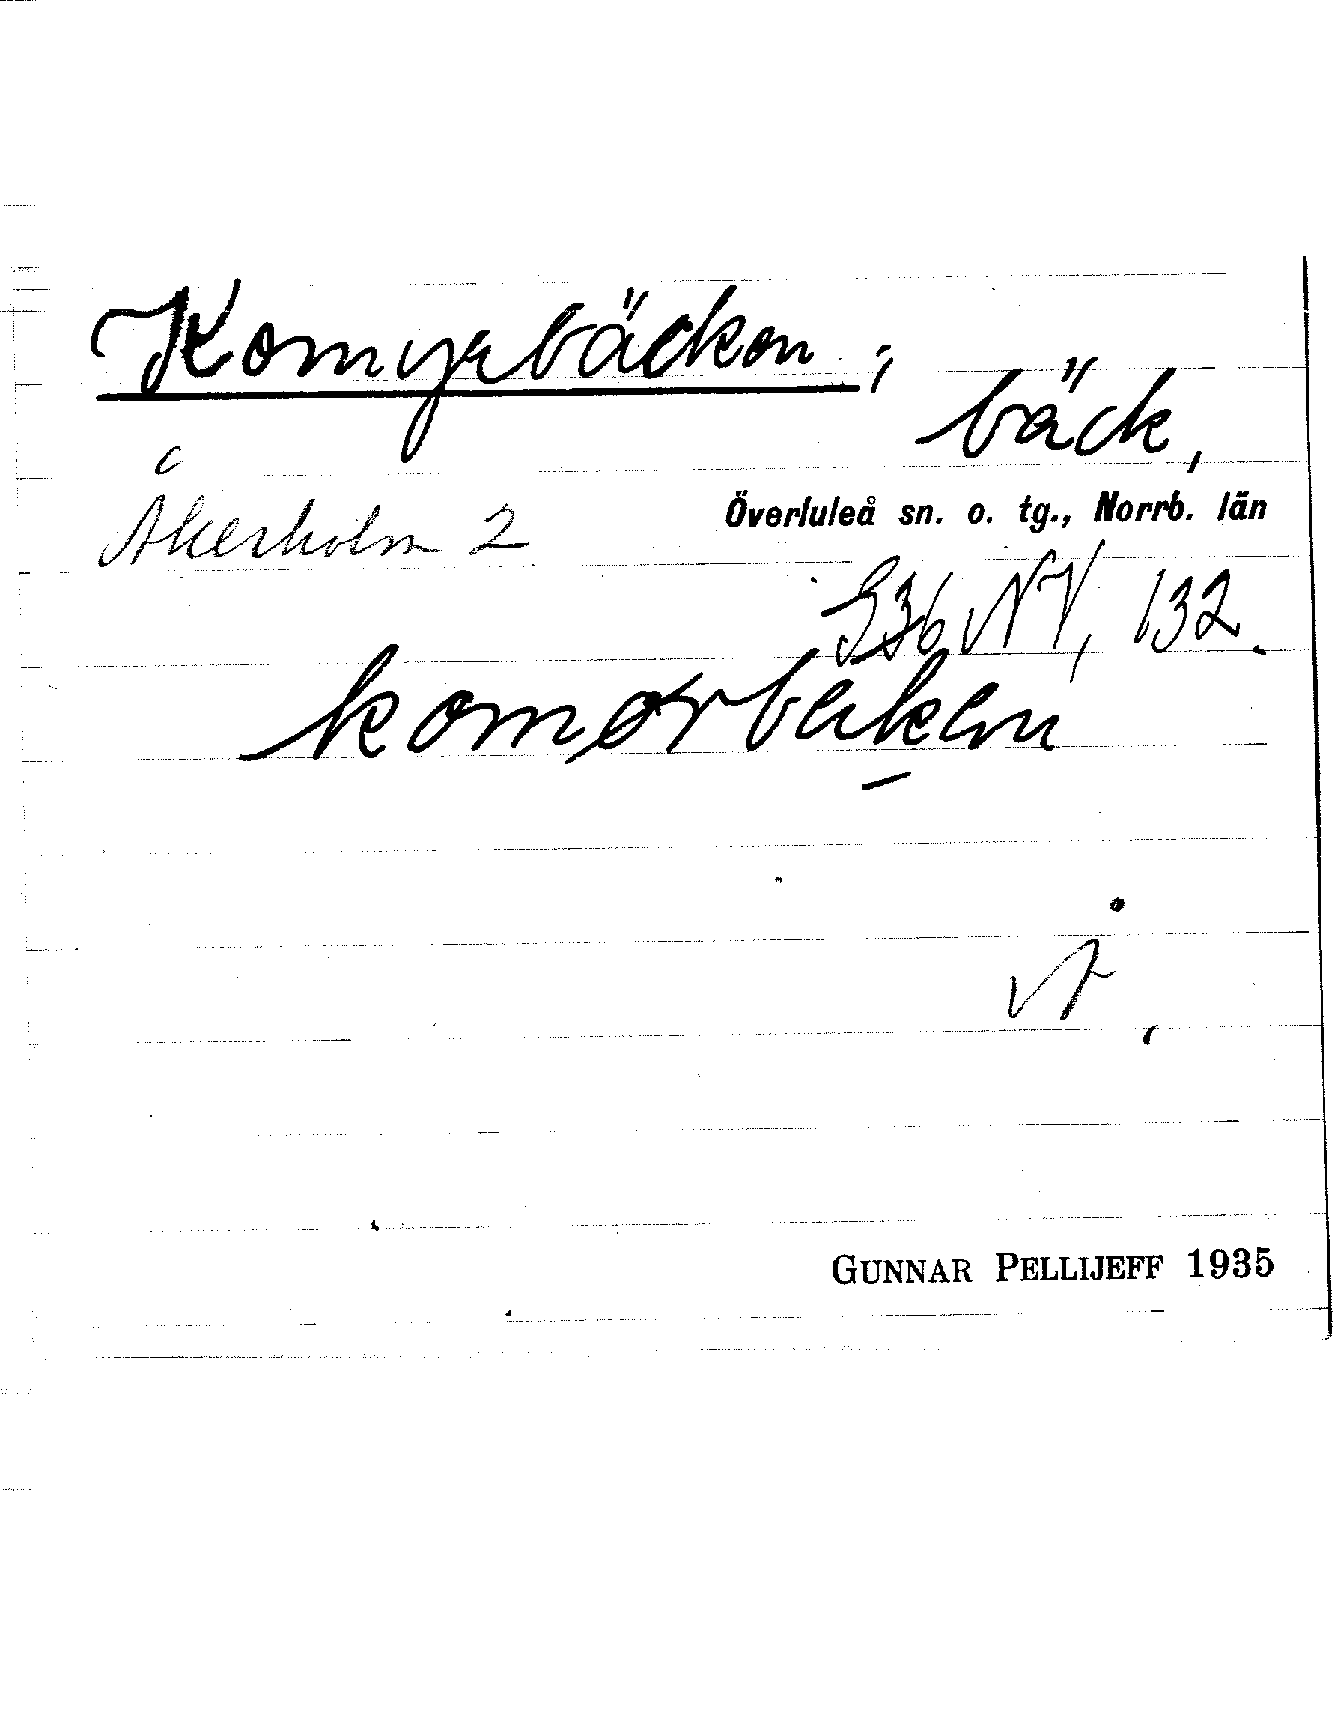 Komyrbäcken; bäck,
Åkerholm 2
Överluleå sn. o. tg., Norrb. län
S36 NV, 132.
komørbækæn
GUNNAR PELLIJEFF 1935